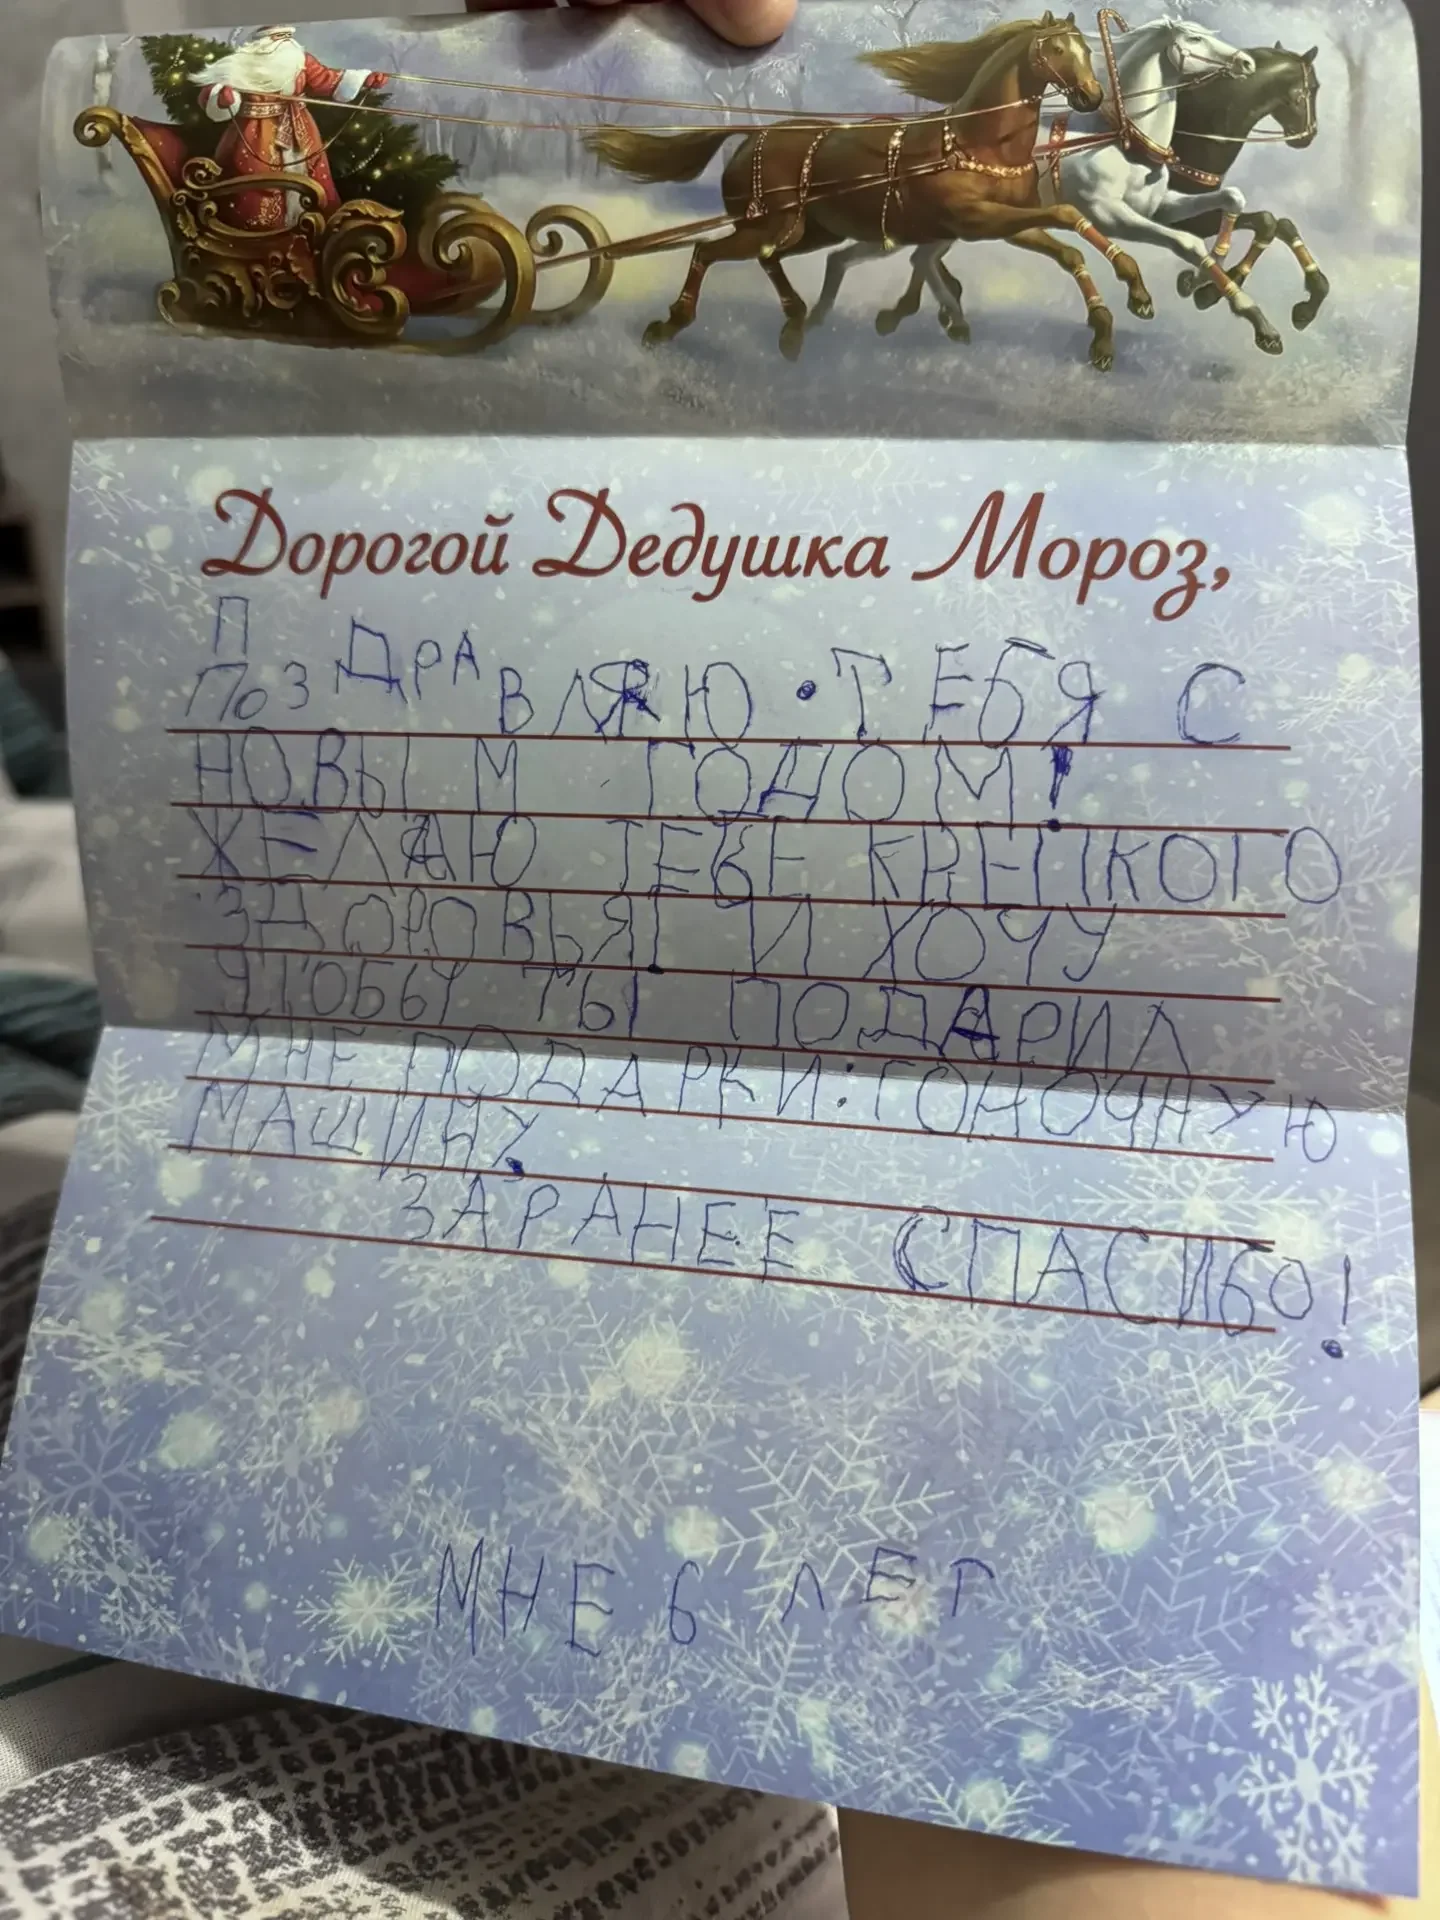 Дорогой Дедушка Мороз,
П
ПОЗДРАВЛЯЮ ТЕБЯ С
НОВЫМ ГОДОМ!
ЖЕЛАЮ ТЕБЕ КРЕПКОГО
ЗДОРОВЬЯ! И ХОЧУ
ЧТОБЫ ТЫ ПОДАРИЛ
МНЕ ПОДАРКИ: ГОНОЧНУЮ
МАШИНУ.
ЗАРАНЕЕ СПАСИБО!
МНЕ 6 ЛЕТ